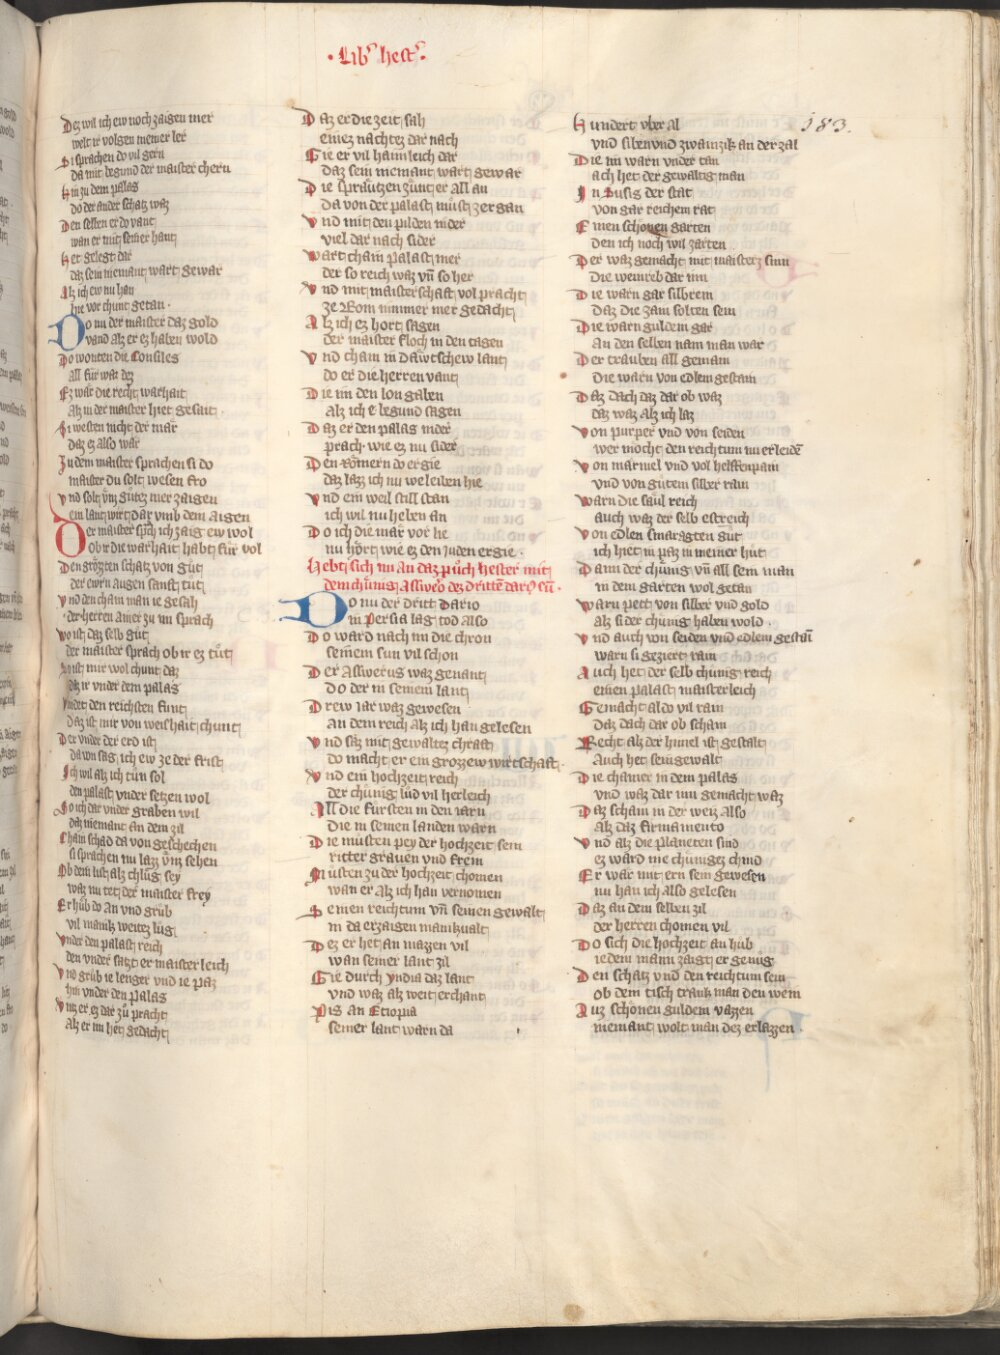 · Lib⁹ hest⁹ ·
183.
Dez wil ich ew noch zaigen mer
welt ir volgen meiner ler
Si sprachen do vil gern
da mit begund der maister chern
Hin zu dem palas
do der ander schatz waz
Den selben er do vant
wan er mit seiner hant
Het gelegt dar
daz sein niemant wart gewar
Alz ich ew nu han
hie vor chunt getan ·
Do nu der maister daz gold
vand alz er ez haben wold
Do wonten die Consiles
all für waz dez
Ez wär die recht warhait
Alz in der maister hiet gesait ·
Si westen nicht der mär
daz ez also wär
Zu dem maister sprachen si do
maister du solt wesen fro
Vnd solt vns gutez mer zaigen
ein lant wirt dar vmb dein aigen
Der maister sprich ich zaig ew wol
Ob ir die warhait habt für vol
Den grözten schatz von gut
der ewrn augen sanft tut
Vnd den cham man ie gesach
der herren ainer zu im sprach
Wo ist daz selb gut
der maister sprach ob ir ez tut
So ist mir wol chunt daz
daz ir vnder dem palas
Vindet den reichsten funt
Daz ist mir von weishait chunt
Der vnder der erd ist
da von sag ich ew ze der frist
Ich wil alz ich tun sol
den palast vnder setzen wol
So ich dar vnder graben wil
daz niemant an dem zil
Cham schad da von geschechen
si sprachen nu lazz vns sehen
Ob dein list alz chlug sey
waz nu tet der maister frey
Er hub do An vnd grub
vil manik weitez lug
Vnder den palast reich
den vnder satzt er maisterleich
Vnd grub ie lenger vnd ie paz
hin vnder den palas
Vntz er ez dar zu pracht
Alz er im het gedacht
Daz er die zeit sach
einez nachtez dar nach
Gie er vil haimleich dar
daz sein niemant wart gewar
Die spräutzen zunt er all an
da von der palast must zergan
Vnd mit den pilden nider
viel dar nach sider
Wart cham palast mer
der so reich waz vn so her
Vnd mit maisterschaft vol pracht
ze Rom nimmer mer gedacht
Alz ich ez hort sagen
der maister floch in den tagen
Vnd cham in dawtschew lant
do er die herren vant
Die im den lon gaben
Alz ich e begund sagen
Daz er den palas nider
prach wie ez nu sider
Den Romern do ergie
daz lazz ich nu weleiben hie
Vnd ein weil still stan
ich wil nu heben an
Do ich die mär vor he
nu hort wie ez den juden ergie ·
Hebt sich nu an daz puch hester mit
dem chunig Asswero dez dritten dary sun ·
Do nu der dritt Dario
in Persia lag tod also
Do ward nach im die chron
seinem sun vil schon
Der Asswerus waz genant
Do der in seinem lant
Drew jar waz gewesen
An dem reich alz ich han gelesen
Vnd saz mit gewaltez chraft
do macht er ein grozzew wirtschaft ·
Vnd ein hochzeit reich
der chunig lud vil herleich
All die fursten in den jarn
Die in seinen landen warn
Die musten pey der hochzeit sein
ritter grauen vnd frein
Musten zu der hochzeit chomen
wan er Alz ich han vernomen
Seinen reichtum vn seinen gewalt
in da erzaigen manikualt
Dez er het an mazzen vil
wan seiner lant zil
Gie durch Yndia daz lant
vnd waz alz weit erchant
Pis an Etiopia
seiner lant warn da
Hundert vber al
vnd siben vnd zwainzik an der zal
Die im warn vnder tan
ach het der gewaltig man
In Susis der stat
von gar reichem rat
Einen schonen garten
Den ich noch wil zarten
Der waz gemacht mit maister sinn
Die weinreb dar inn
Die warn gar silbrein
daz die zam solten sein
Die warn guldein gar
An den selben nam man war
Der trauben all gemain
Die warn von edlem gestain
Daz dach daz dar ob waz
daz waz alz ich laz
Von purper vnd von seiden
wer mocht den reichtum im erleiden
Von märmel vnd vol helffenpain
vnd von gutem silber rain
Warn die säul reich
auch waz der selb estreich
Von edlen smaragten gut
ich hiet in paz in meiner hut
Dann der chunig vn all sein man
in dem garten wol getan
Warn pett von silber vnd gold
alz si der chunig haben wold ·
Vnd auch von seiden vnd edlem gestain
warn si geziert rain
Auch het der selb chunig reich
einen palast maisterleich
Gemacht aldo vil rain
Daz dach dar ob schain
Recht alz der himel ist gestalt
Auch het sein gewalt
Die chamer in dem palas
vnd waz dar inn gemacht waz
Daz schain in der weiz also
Alz daz firmamento
Vnd alz die planeten sind
ez ward nie chunigez chind
Er wär mit ern sein gewesen
nu han ich also gelesen
Daz an dem selben zil
der herren chomen vil
Do sich die hochzeit an hub
jedem mann zaigt er genug
Den schatz vnd den reichtum sein
ob dem tisch trank man den wein
Auz schonen guldein vazzen
niemant wolt man dez erlazzen ·